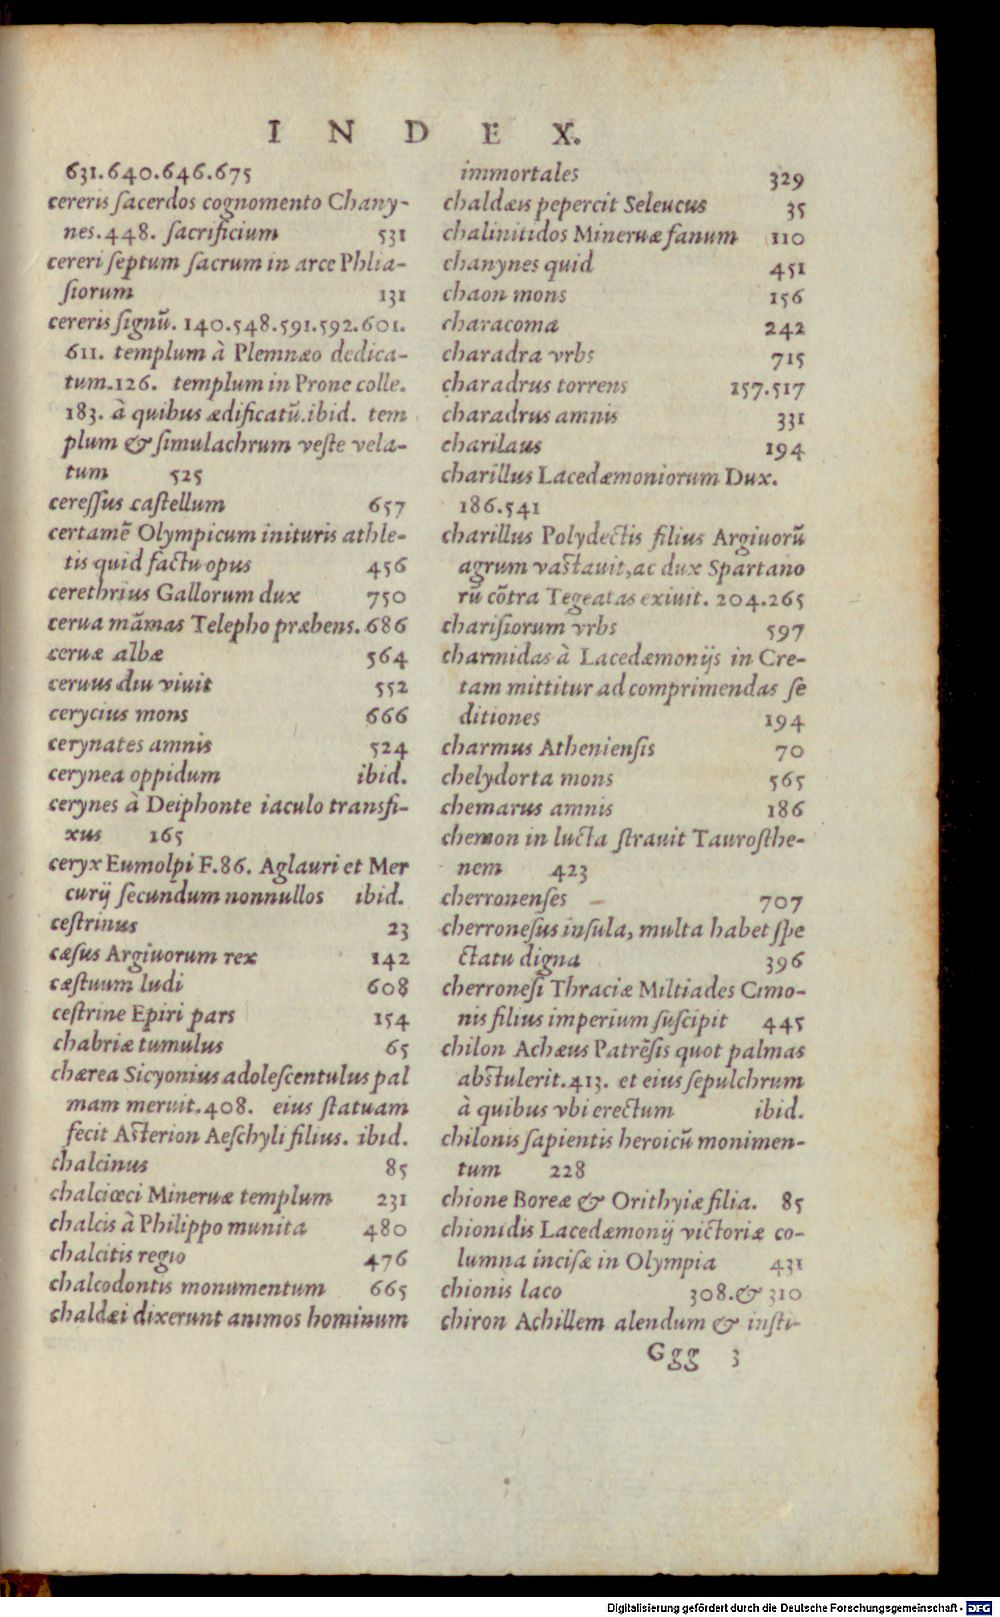 INDEX.
631.640.646.675
cereris ſacerdos cognomento Chany-
nes.448. ſacrificium 531
cereri ſeptum ſacrum in arce Phlia-
ſiorum 131
cereris ſignū. 140.548.591.592.601.
611. templum à Plemnæo dedica-
tum.126. templum in Prone colle.
183. à quibus ædificatū.ibid. tem
plum & ſimulachrum veſte vela-
tum 525
cereſſus caſtellum 657
certamē Olympicum inituris athle-
tis quid factu opus 456
cerethrius Gallorum dux 750
cerua māmas Telepho præbens.686
ceruæ albæ 564
ceruus diu viuit 552
cerycius mons 666
cerynates amnis 524
cerynea oppidum ibid.
cerynes à Deiphonte iaculo transfi-
xus 165
ceryx Eumolpi F.86. Aglauri et Mer
curij ſecundum nonnullos ibid.
ceſtrinus 23
cæſus Argiuorum rex 142
cæſtuum ludi 608
ceſtrine Epiri pars 154
chabriæ tumulus 65
chærea Sicyonius adoleſcentulus pal
mam meruit.408. eius ſtatuam
fecit Aſterion Aeſchyli filius. ibid.
chalcinus 85
chalciœci Mineruæ templum 231
chalcis à Philippo munita 480
chalcitis regio 476
chalcodontis monumentum 665
chaldæi dixerunt animos hominum
immortales 329
chaldæis pepercit Seleucus 35
chalinitidos Mineruæ fanum 110
chanynes quid 451
chaon mons 156
characoma 242
charadra vrbs 715
charadrus torrens 157.517
charadrus amnis 331
charilaus 194
charillus Lacedæmoniorum Dux.
186.541
charillus Polydectis filius Argiuorū
agrum vaſtauit,ac dux Spartano
rū cōtra Tegeatas exiuit. 204.265
chariſiorum vrbs 597
charmidas à Lacedæmonijs in Cre-
tam mittitur ad comprimendas ſe
ditiones 194
charmus Athenienſis 70
chelydorta mons 565
chemarus amnis 186
chemon in lucta ſtrauit Tauroſthe-
nem 423
cherronenſes 707
cherroneſus inſula, multa habet ſpe
ctatu digna 396
cherroneſi Thraciæ Miltiades Cimo-
nis filius imperium ſuſcipit 445
chilon Achæus Patrēſis quot palmas
abſtulerit.413. et eius ſepulchrum
à quibus vbi erectum ibid.
chilonis ſapientis heroicū monimen-
tum 228
chione Boreæ & Orithyiæ filia. 85
chionidis Lacedæmonij victoriæ co-
lumna inciſæ in Olympia 431
chionis laco 308.& 310
chiron Achillem alendum & inſti-
Ggg 3
Digitalisierung gefördert durch die Deutsche Forschungsgemeinschaft - DFG